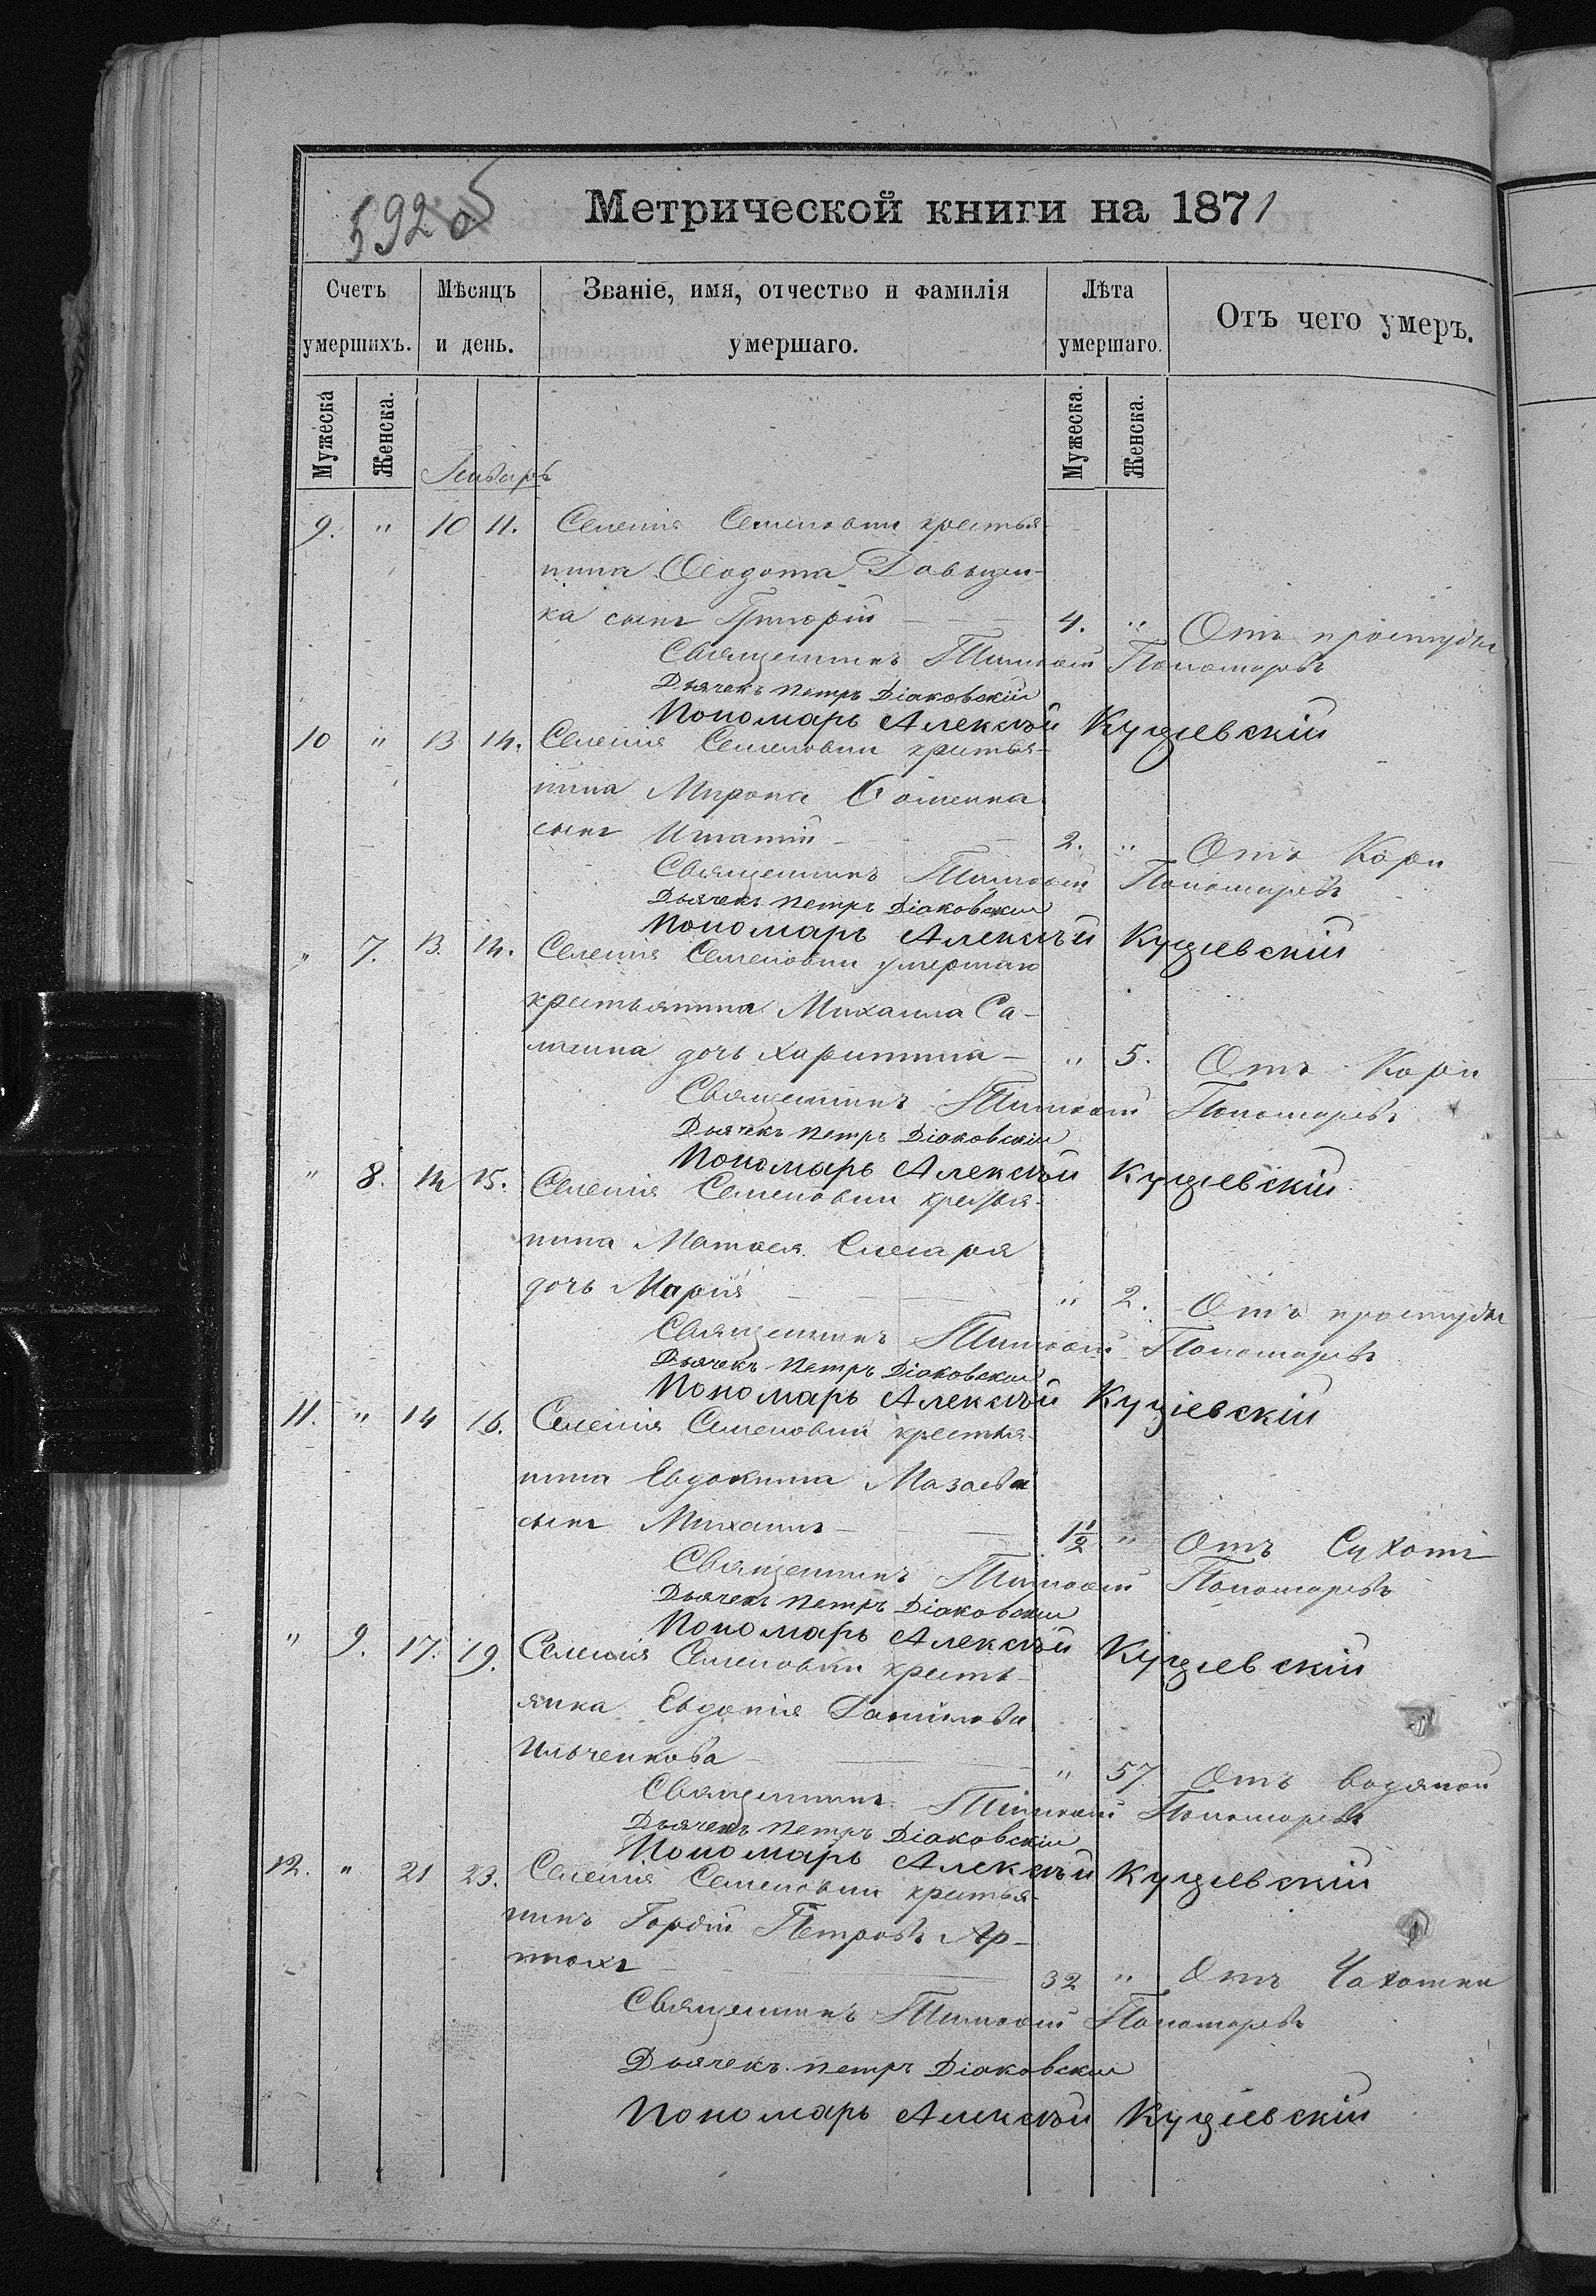 5920
Метрической книги на 1871
Счетъ умершихъ.
Мѣсяцъ и день.
Званіе, имя, отчество и фамилія умершаго.
Лѣта умершаго.
Отъ чего умеръ.
Мужеска
Женска.
Мужеска.
Женска.
Январь
9. " 10 11. Селенія Семеновки крестья-
нина Ѳеодота Давыден-
ка сынъ Григорій 4. " Отъ простуды
Священникъ Тимофей Пономаревъ
Дьячекъ Петръ Діаковскій
Пономарь Алексѣй Кущевскій
10 " 13 14. Селенія Семеновки крестья-
нина Мирона
сынъ Игнатій 2. " Отъ Кори
Священникъ Тимофей Пономаревъ
Дьячекъ Петръ Діаковскій
Пономарь Алексѣй Кущевскій
" 7. 13. 14. Селенія Семеновки умершаго
крестьянина Михаила Са-
дочь Харитинія " 5. Отъ Кори
Священникъ Тимофей Пономаревъ
Дьячекъ Петръ Діаковскій
Пономарь Алексѣй Кущевскій
" 8. 14 15. Селенія Семеновки крестья-
нина Матвея Слесаря
дочь Марія " 2. Отъ простуды
Священникъ Тимофей Пономаревъ
Дьячекъ Петръ Діаковскій
Пономарь Алексѣй Кущевскій
11. " 14 16. Селенія Семеновки крестья-
нина Евдокима Мазаева
сынъ Михаилъ 1½ " Отъ Сухоті
Священникъ Тимофей Пономаревъ
Дьячекъ Петръ Діаковскій
Пономарь Алексѣй Кущевскій
" 9. 17. 19. Селенія Семеновки кресть-
янка Евдокія Данилова
Ильченкова " 57 Отъ водяной
Священникъ Тимофей Пономаревъ
Дьячекъ Петръ Діаковскій
Пономарь Алексѣй Кущевскій
12. " 21 23. Селенія Семеновки крестья-
нинъ Гордій Петровъ Ар-
32 " Отъ Чахотки
Священникъ Тимофей Пономаревъ
Дьячекъ Петръ Діаковскій
Пономарь Алексѣй Кущевскій